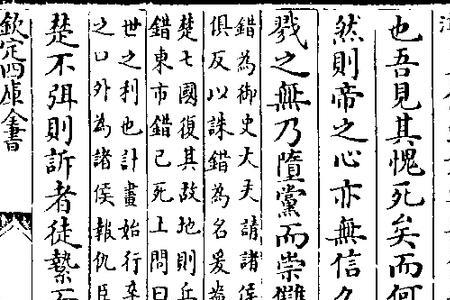 也吾見其愧死矣而何
然則帝之心亦無信
戮之無乃隳黨而崇讎
錯為御史大夫請諸侯
俱反以誅錯為名爰
楚七國復其故地則兵
錯東市錯已死上問曰
世之利也計畫始行卒
之口外為諸侯報仇臣
楚不弭則訴者徒縶
欽定四庫全書